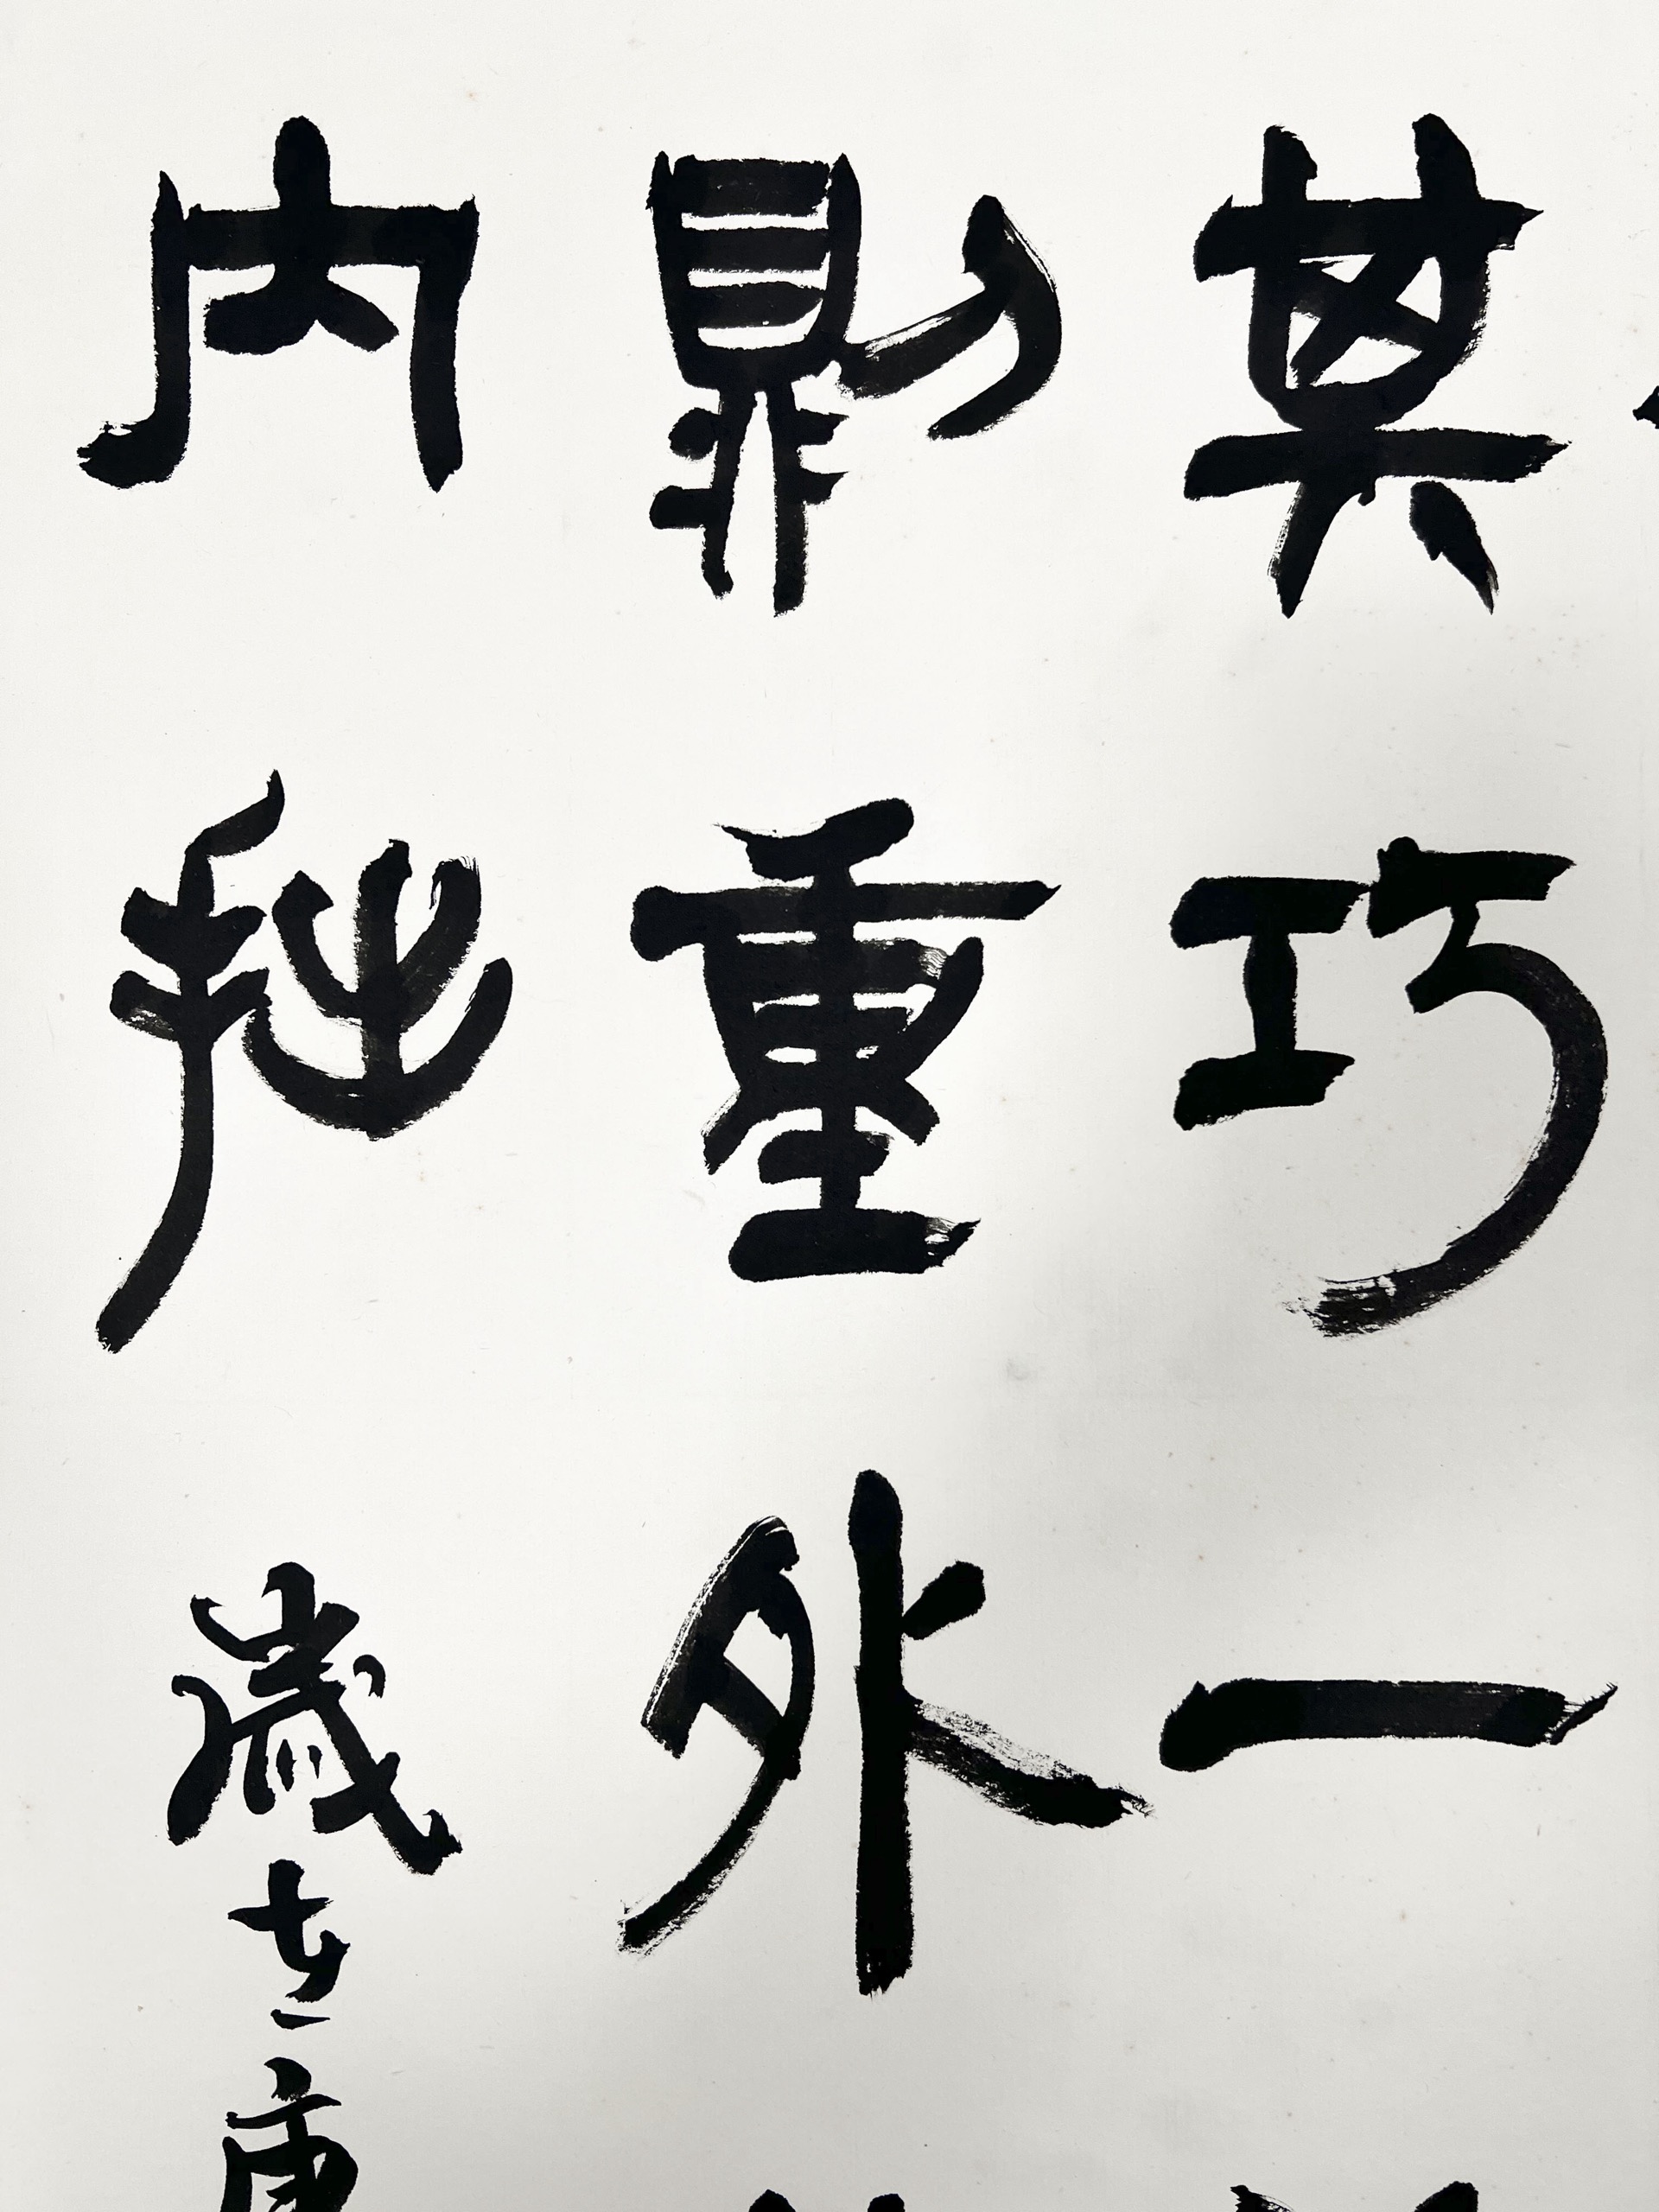 其巧一
則重外
内拙歲在庚